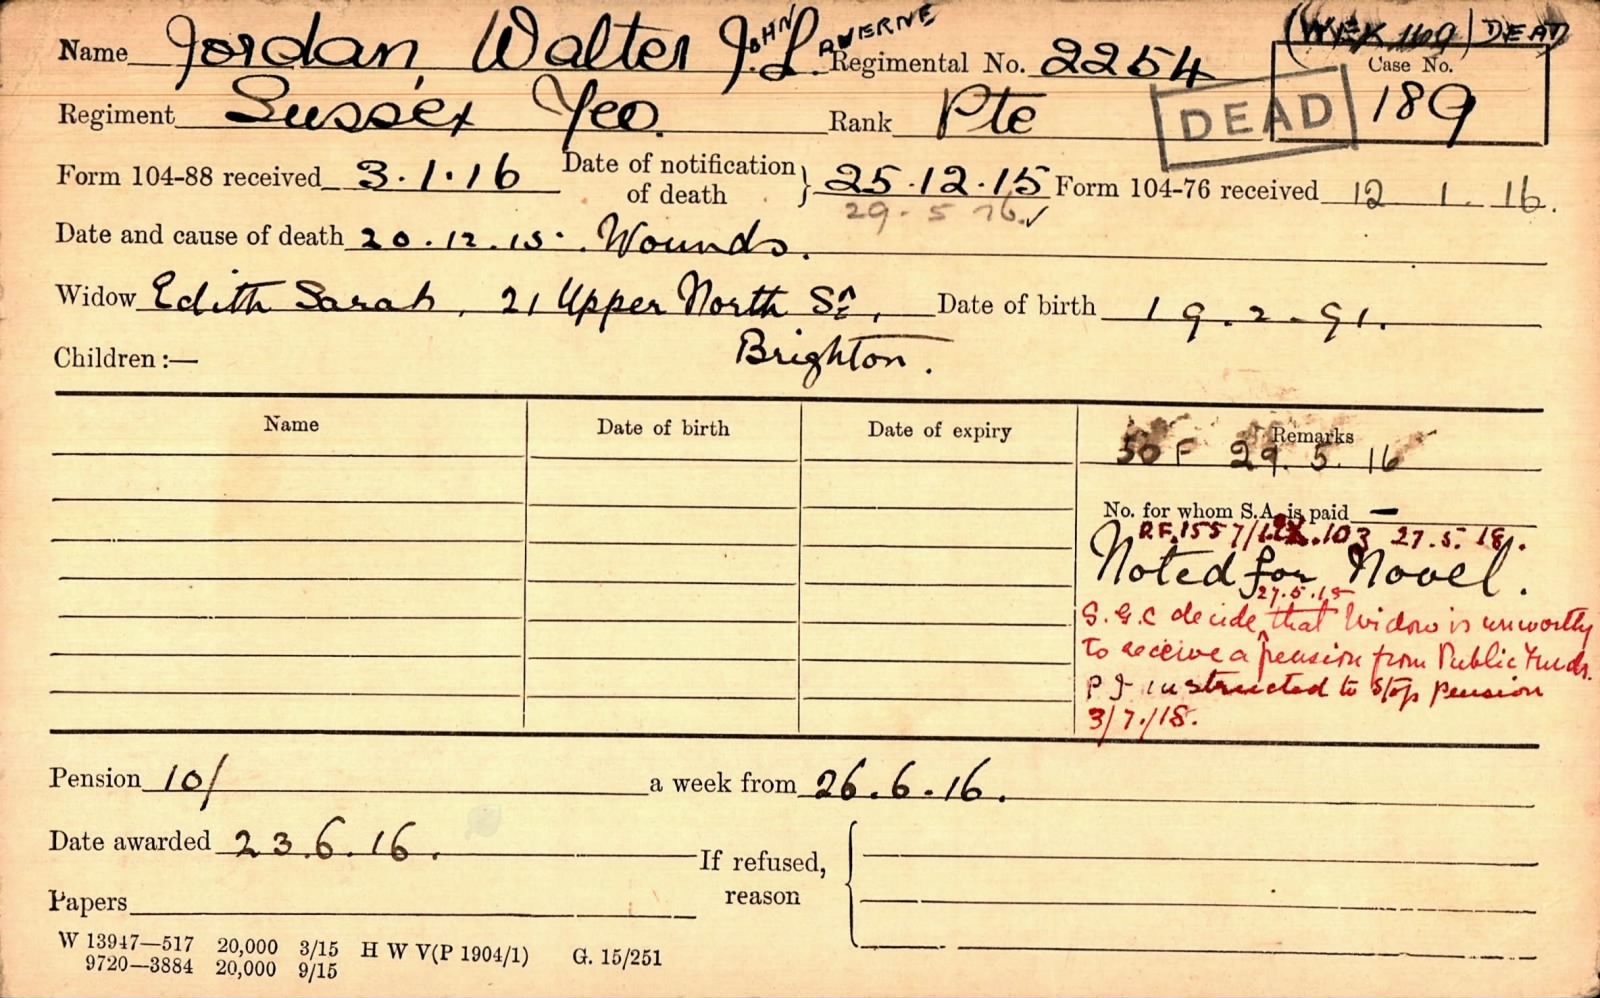 (WEK 169) DEAD
Name Jordan, Walter JOHN LAVERNE Regimental No. 2254 Case No. 189
DEAD
Regiment Sussex Yeo. Rank Pte
Form 104-88 received 3.1.16 Date of notification of death } 25.12.15 Form 104-76 received 12 1. 16.
29. 5 16. ✓
Date and cause of death 20.12.15. Wounds.
Widow Edith Sarah, 21 Upper North St, Date of birth 19.2.91.
Children :— Brighton.
Name Date of birth Date of expiry Remarks
50 F 29. 5. 16
No. for whom S.A. is paid —
RF.1557/ .103 27.5.18.
Noted for Novel.
27.5.18
S.G.C decide that Widow is unworthy
to receive a pension from Public Funds.
P I instructed to stop pension
3/7./18.
Pension 10/ a week from 26.6.16.
Date awarded 23.6.16.
If refused, reason
Papers
W 13947—517 20,000 3/15 H W V(P 1904/1) G. 15/251
9720—3884 20,000 9/15